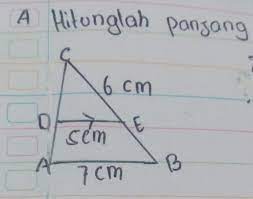 A Hitunglah panjang
C
6 cm
D
E
5cm
A
B
7 cm